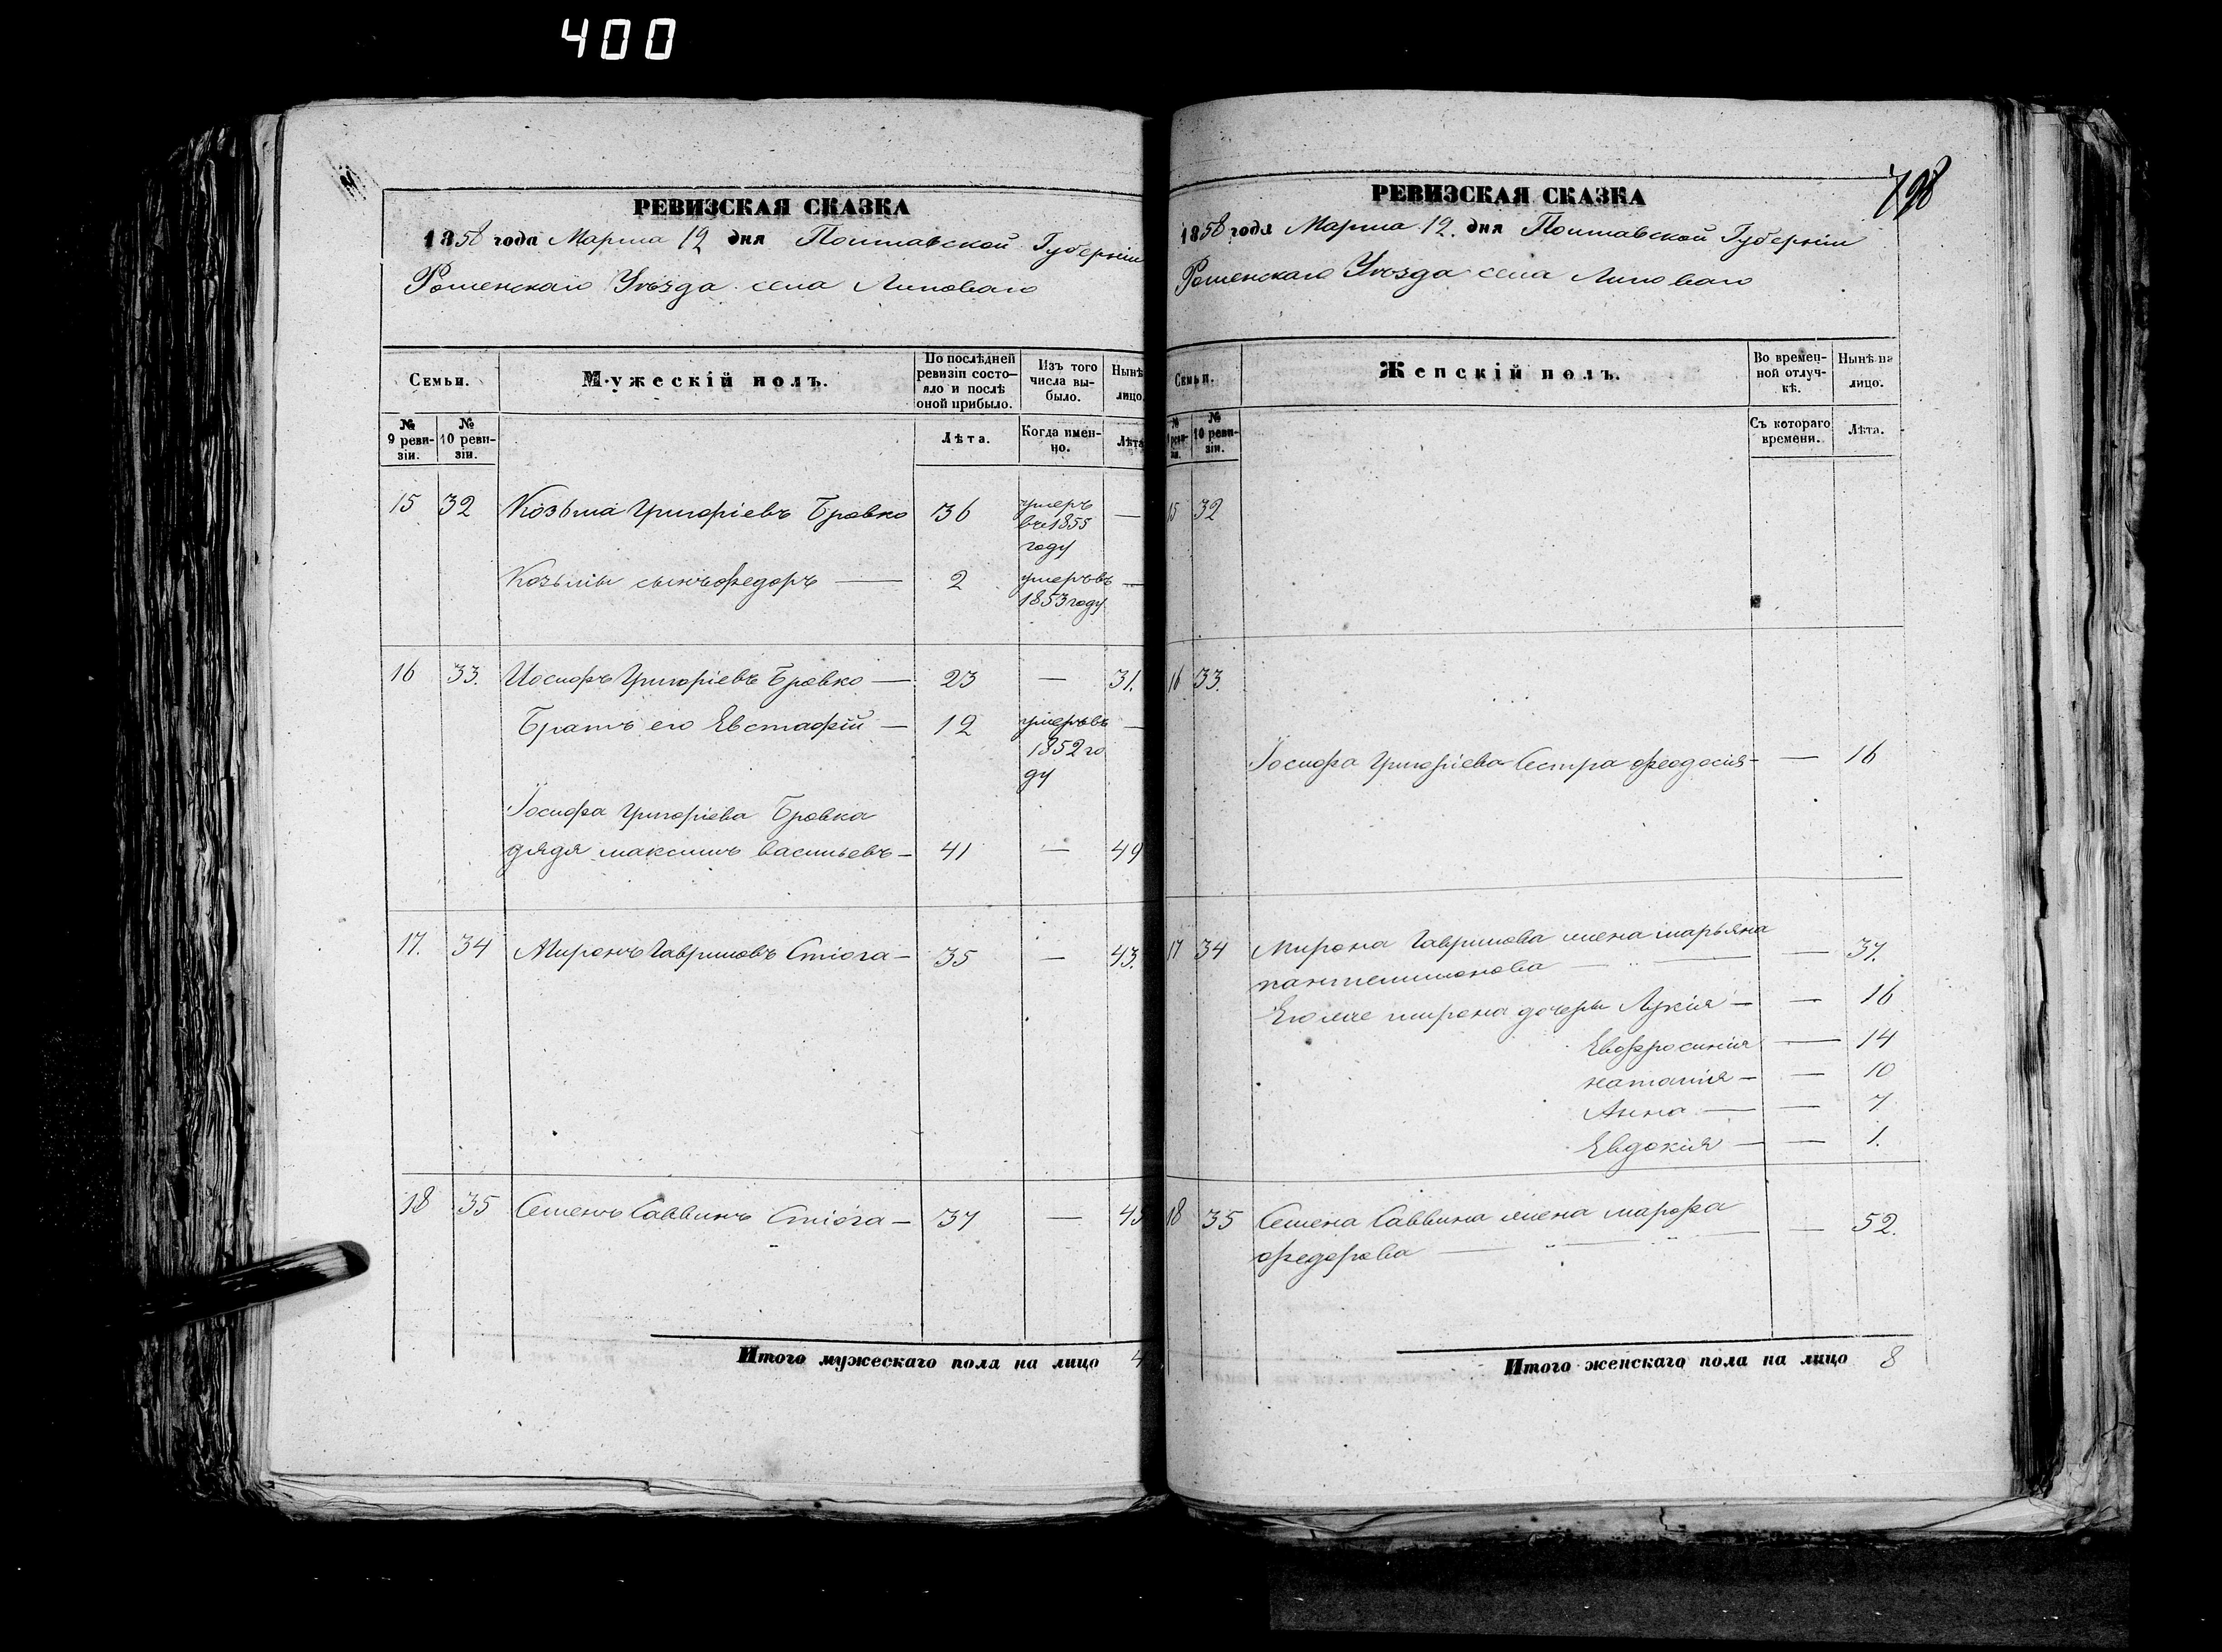 400
РЕВИЗСКАЯ СКАЗКА
1858 года Марта 12 дня Полтавской Губерніи
Роменскаго Уѣзда села Липоваго
Семьи.
Мужескій полъ.
По послѣдней ревизіи состояло и послѣ оной прибыло.
Изъ того числа выбыло.
Нынѣ лицо.
№ 9 ревизіи.
№ 10 ревизіи.
Лѣта.
Когда именно.
Лѣта
15 32 Козьма Григоріевъ Бровко 36 умеръ въ 1855 году —
Козьмы сынъ Федоръ — 2 умеръ въ 1853 году —
16 33. Иосифъ Григоріевъ Бровко — 23 — 31.
Братъ его Евстафій — 12 умеръ въ 1852 году —
Іосифа Григоріева Бровка
дядя максимъ васильевъ — 41 — 49
17. 34 Миронъ Гавриловъ Стіога — 35 — 43.
18 35 Семенъ Саввинъ Стіога — 37 — 45
Итого мужескаго пола на лицо 4
798
РЕВИЗСКАЯ СКАЗКА
1858 года Марта 12. дня Полтавской Губерніи
Роменскаго Уѣзда села Липоваго
Семьи.
Женскій полъ.
Во временной отлучкѣ.
Нынѣ на лицо.
№ 9 ревизіи.
№ 10 ревизіи.
Съ котораго времени.
Лѣта.
15 32
16 33.
Іосифа Григоріева Сестра феодосія — — 16
17 34 Мирона Гаврилова жена марьяна
пантелимонова — — 37.
Его же мирона дочери Лукія — — 16
Евфросинія — 14
наталія — — 10
Анна — — 7
Евдокія — — 1.
18 35 Семена Саввина жена марфа
федорова — — 52.
Итого женскаго пола на лицо 8